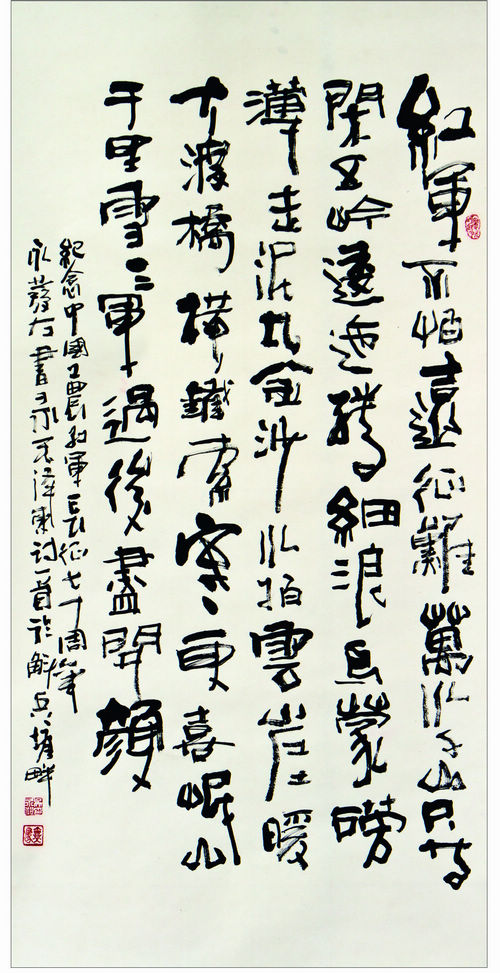 紅軍不怕遠征難萬水千山只等
閑五岭逶迤騰細浪烏蒙磅
薄走泥丸金沙水拍雲崖暖
大渡橋橫鐵索寒更喜岷山
千里雪三軍過後盡開顏
紀念中國工農紅軍長征七十周年
永發左書录毛澤東詩一首於兵畔